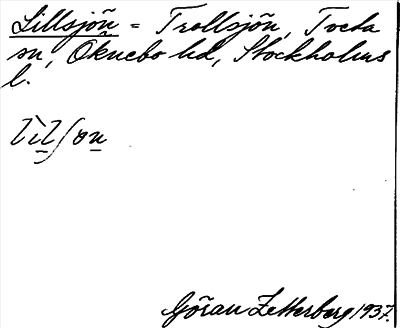 Lillsjön = Trollsjön, Torta
sn, Öknebo hd, Stockholms
l.
lìlʃơn
Göran Zetterberg 1937.